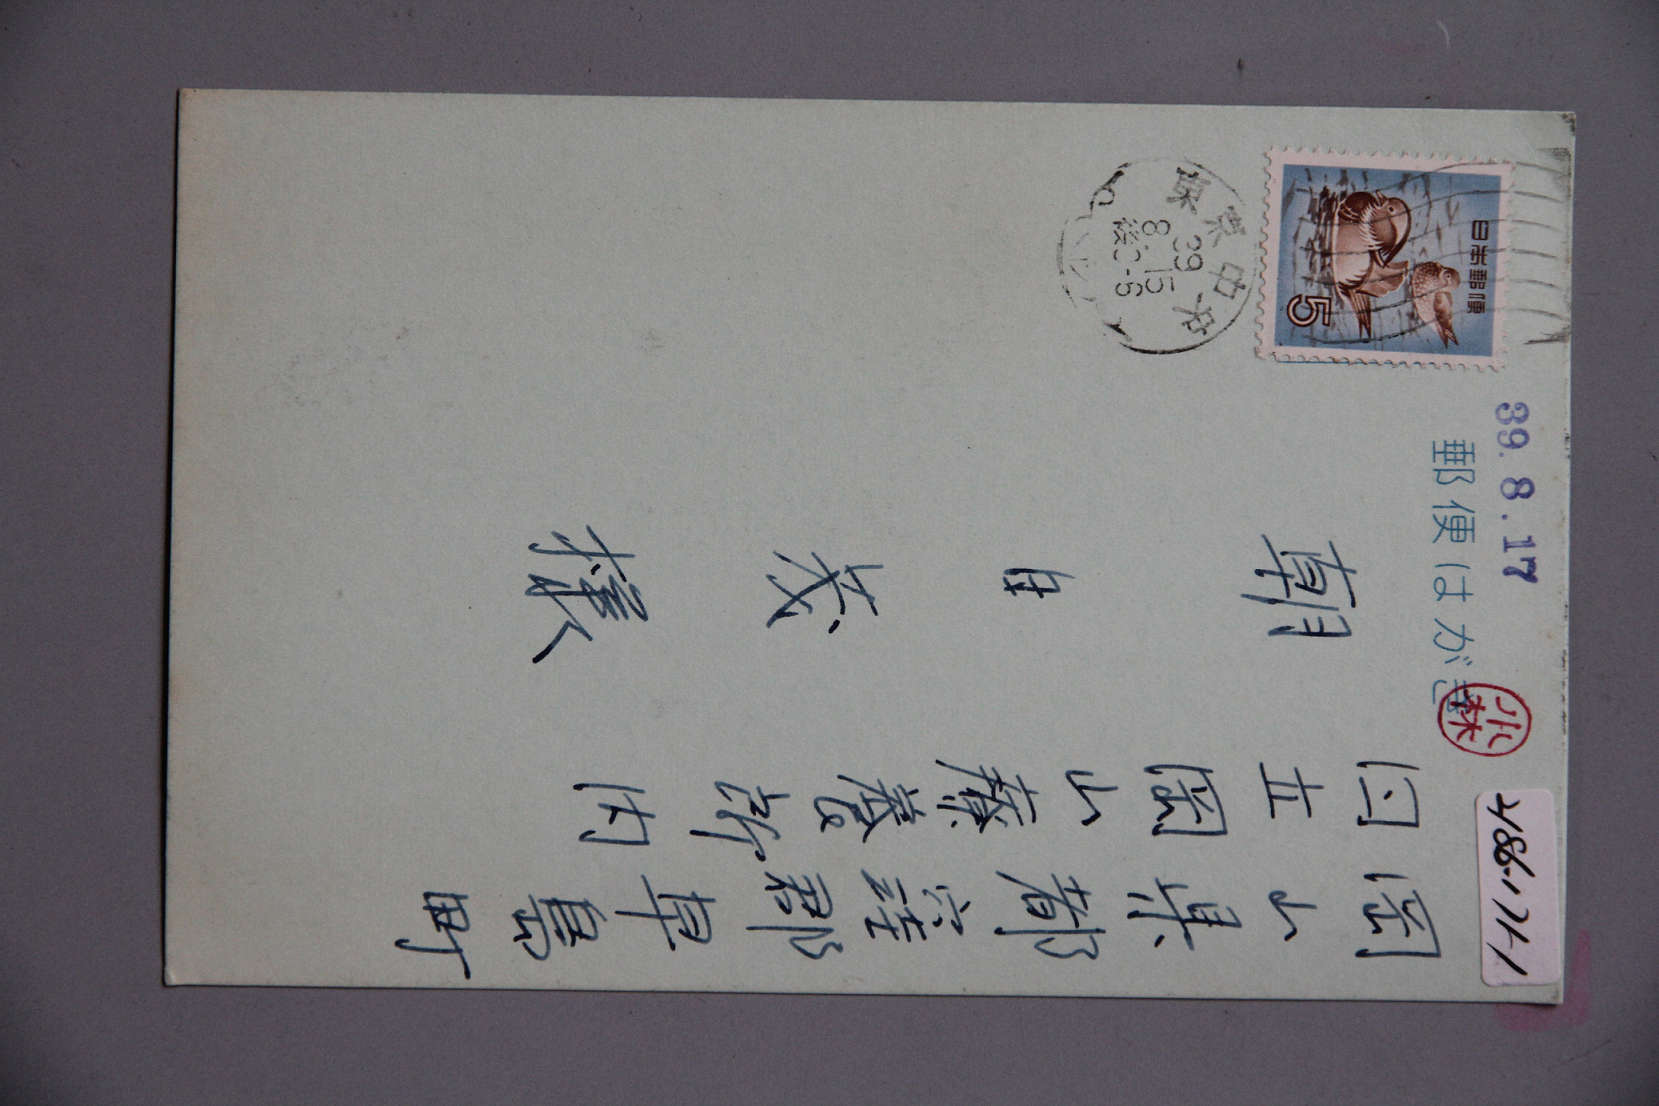 岡山県都窪郡早島町
国立岡山療養所内
朝日茂様
郵便はがき
39.8.17
小林
日本郵便
5
東京中央
39
8.15
後
486-171-1